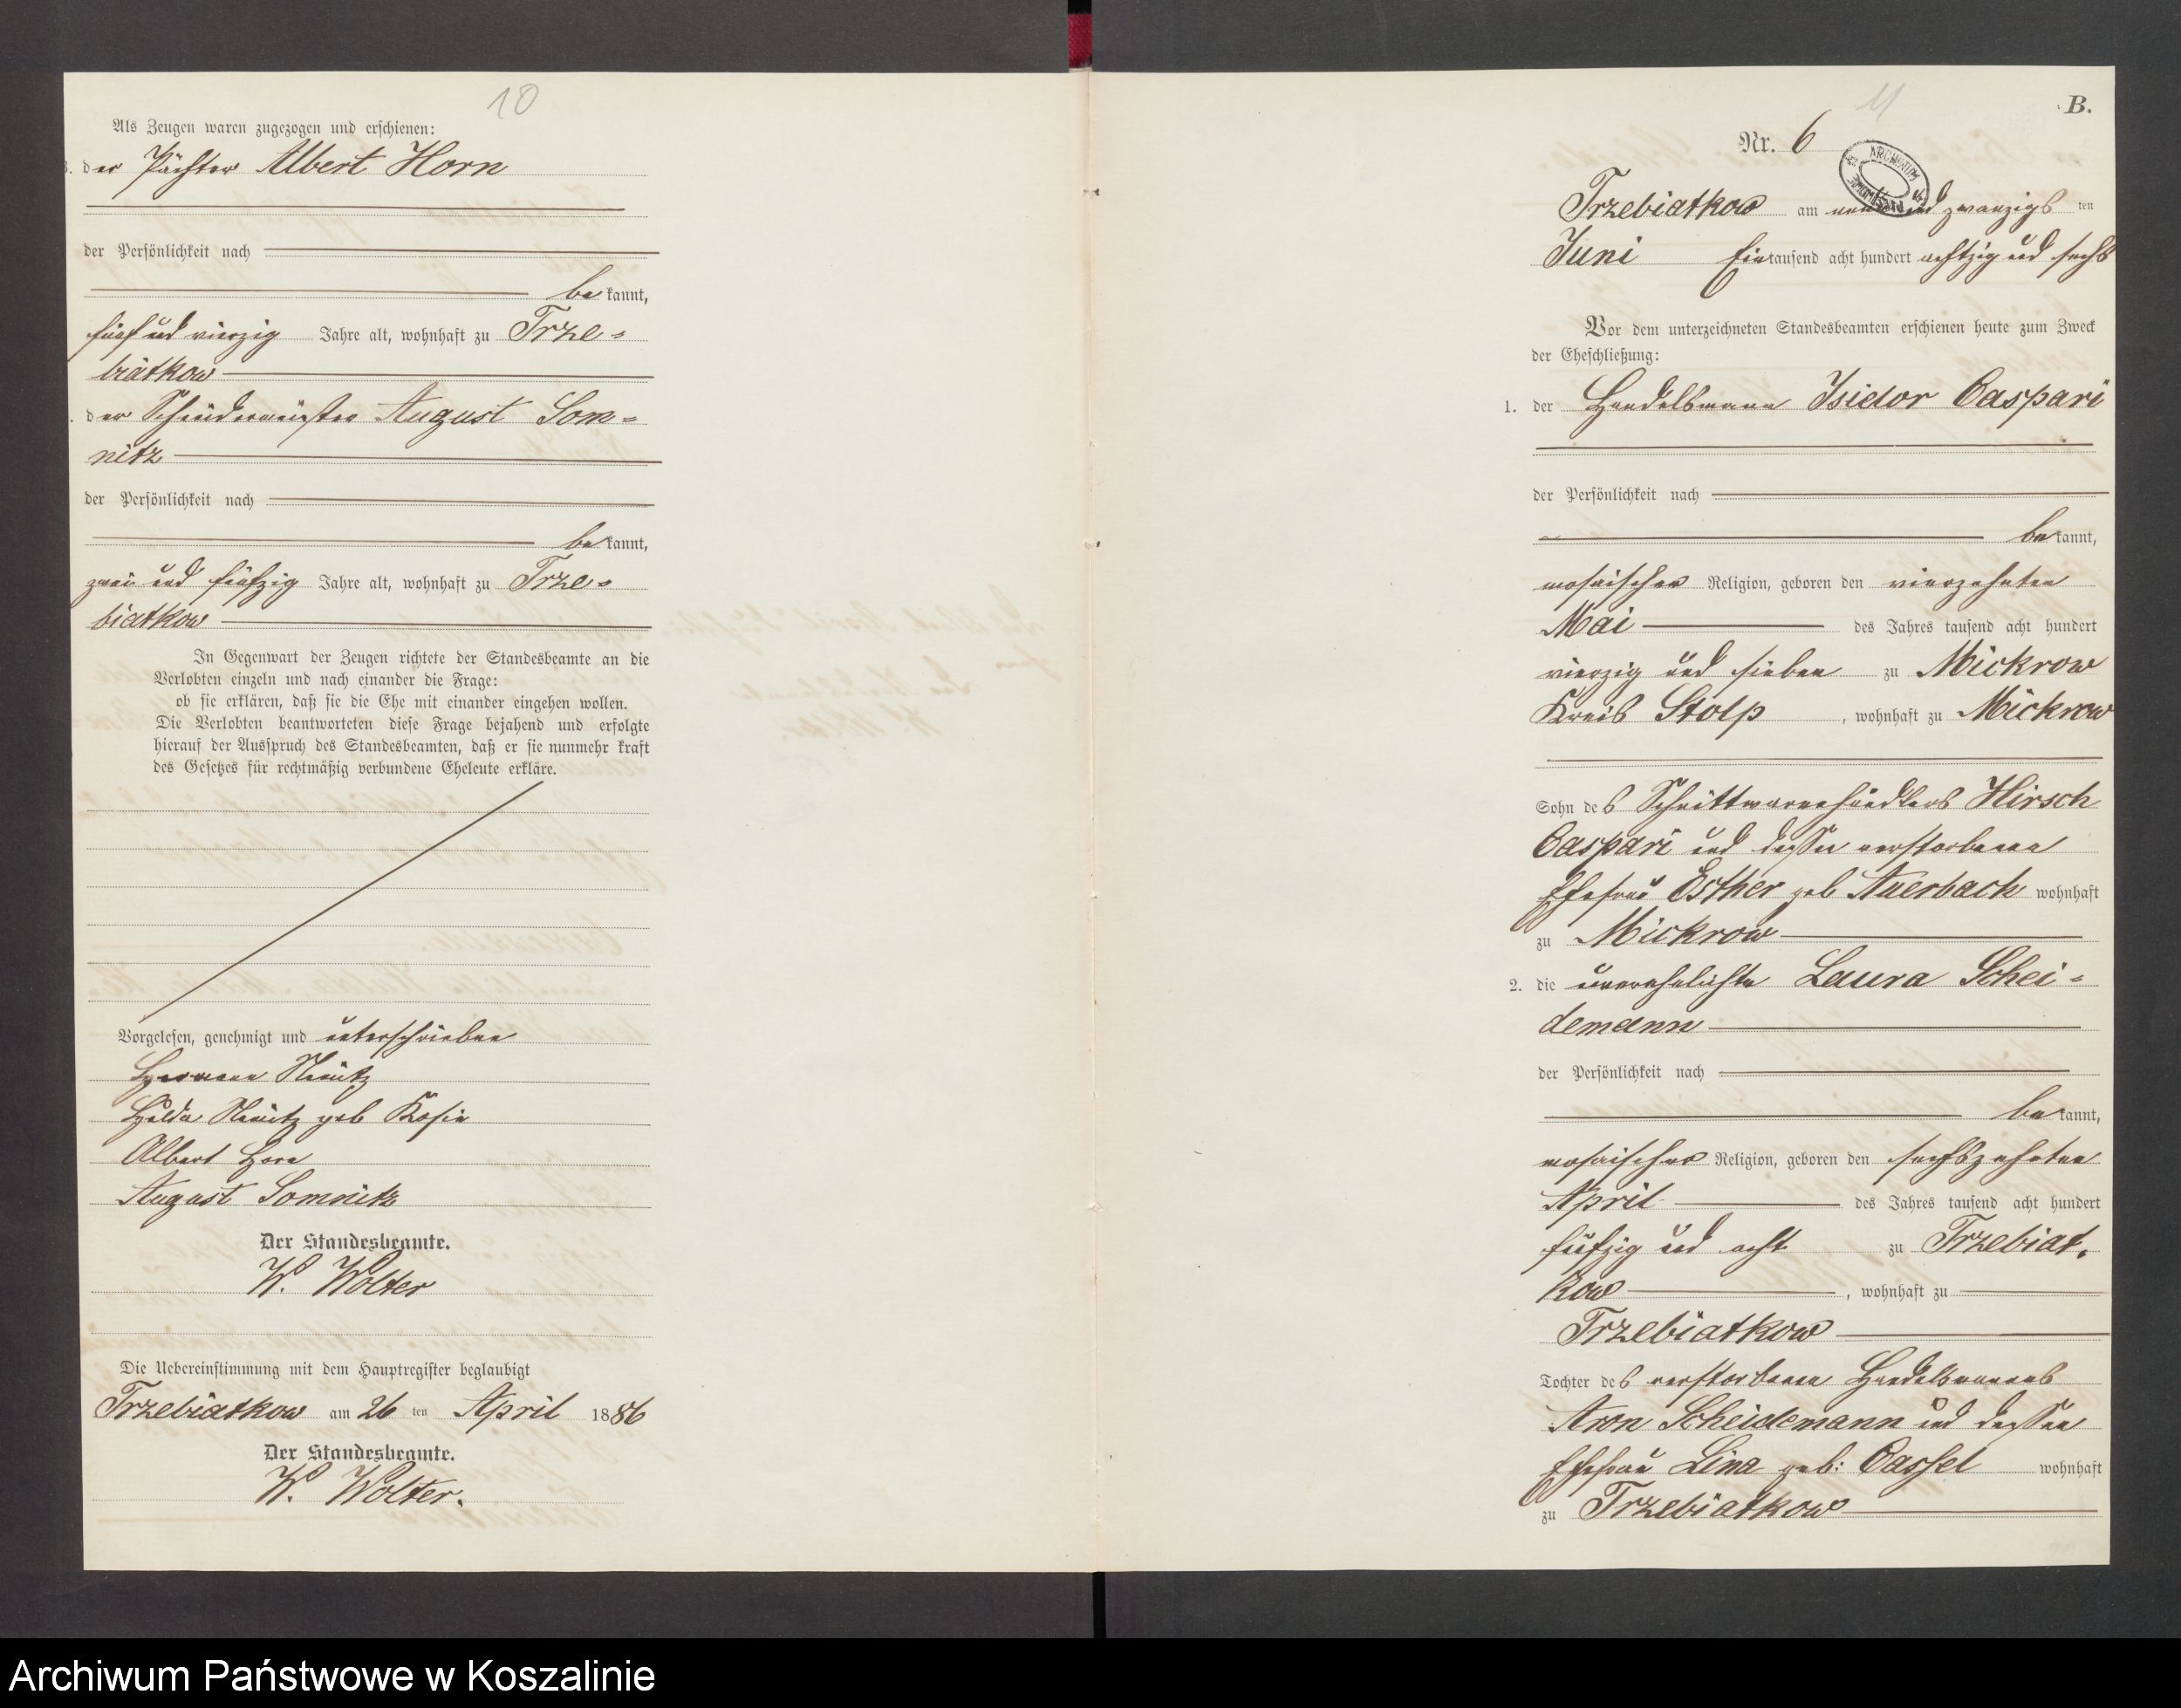 10
Als Zeugen waren zugezogen und erschienen:
3. der Pächter Albert Horn
der Persönlichkeit nach
bekannt,
fünf und vierzig Jahre alt, wohnhaft zu Trze=
biatkow
. der Schneidermeister August Som=
nitz
der Persönlichkeit nach
bekannt,
zwei und fünfzig Jahre alt, wohnhaft zu Trze=
biatkow
In Gegenwart der Zeugen richtete der Standesbeamte an die
Verlobten einzeln und nach einander die Frage:
ob sie erklären, daß sie die Ehe mit einander eingehen wollen.
Die Verlobten beantworteten diese Frage bejahend und erfolgte
hierauf der Ausspruch des Standesbeamten, daß er sie nunmehr kraft
des Gesetzes für rechtmäßig verbundene Eheleute erkläre.
Vorgelesen, genehmigt und unterschrieben
Hermann
Hulda geb Kosin
Albert Horn
August Somnitz
Der Standesbeamte.
W. Wolter
Die Uebereinstimmung mit dem Hauptregister beglaubigt
Trzebiatkow am 26 ten April 1886
Der Standesbeamte.
W. Wolter.
11
B.
Nr. 6
ARCHIWUM
Trzebiatkow am neun und zwanzigs ten
Juni Eintausend acht hundert achtzig und sechs
Vor dem unterzeichneten Standesbeamten erschienen heute zum Zweck
der Eheschließung:
1. der Handelsmann Isidor Caspari
der Persönlichkeit nach
bekannt,
mosaischer Religion, geboren den vierzehnten
Mai des Jahres tausend acht hundert
vierzig und sieben zu Mickrow
Kreis Stolp, wohnhaft zu Mickrow
Sohn des Schnittwarenhändlers Hirsch
Caspari und dessen verstorbenen
Ehefrau Esther geb Auerbach wohnhaft
zu Mickrow
2. die unverehelichte Laura Schei=
demann
der Persönlichkeit nach
bekannt,
mosaischer Religion, geboren den sechszehnten
April des Jahres tausend acht hundert
fünfzig und acht zu Trzebiat.
kow, wohnhaft zu
Trzebiatkow
Tochter des verstorbenen Handelsmanns
Aron Scheidemann und dessen
Ehefrau Lina geb: Cassel wohnhaft
zu Trzebiatkow
Archiwum Państwowe w Koszalinie